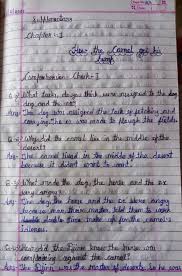 Supplementary
Chapter - 1
How the Camel got his
hump
Comprehension Check - I
Q-1 What tasks, do you think were assigned to the
dog and the ox?
Ans- The dog was assigned the task of fetching and
carrying. The ox was made to plough the fields
Q-2 Why did the camel live in the middle of the
desert?
Ans- The camel lived in the middle of the desert
because it didn't want to work.
Q-3 What made the dog, the horse and the ox
very angry?
Ans- The dog, the horse and the ox were angry
because man them told them to work
double time for the camel's
Q-4 How did the Djinn know the horse was
complaining against the camel?
Ans- The Djinn was the master of deserts. So he was